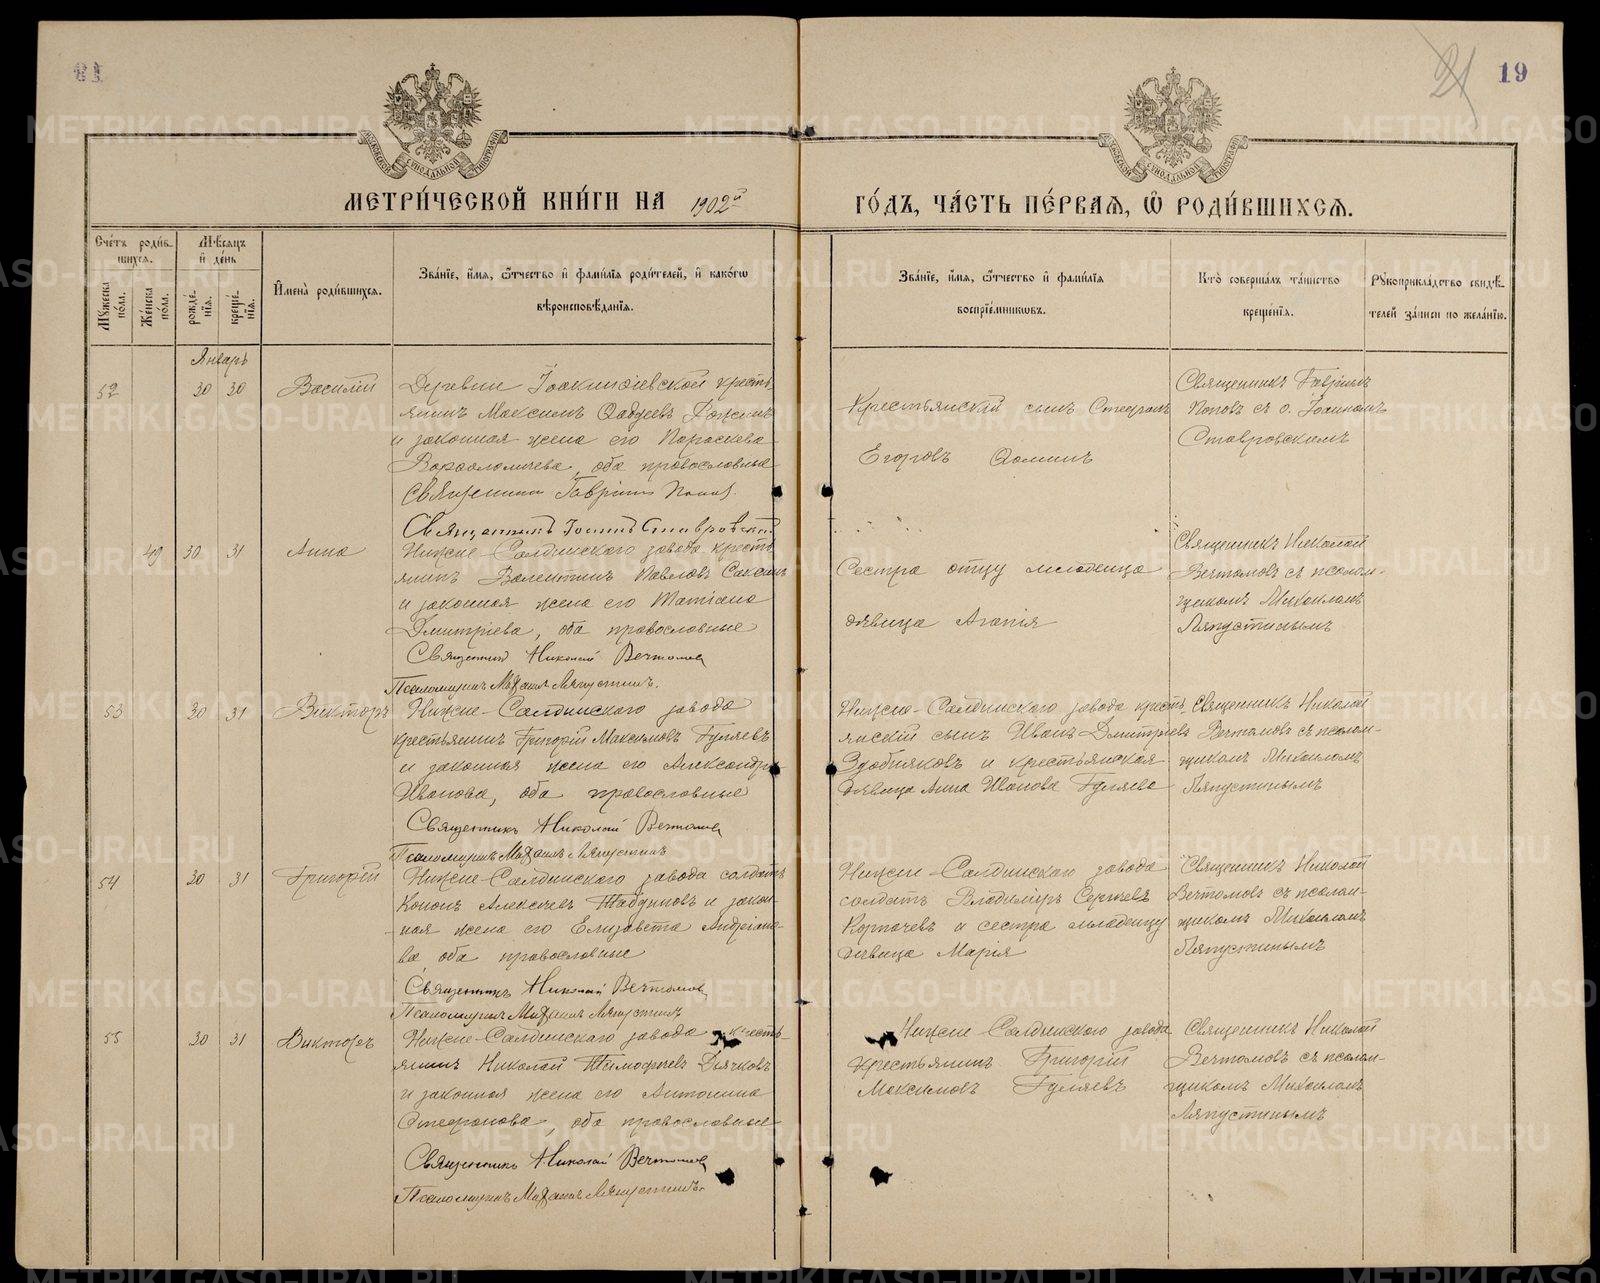 19
МЕТРИ́ЧЕСКОЙ КНИ́ГИ НА 1902й ГО́ДЪ, ЧА́СТЬ ПЕ́РВАЯ, Ѡ РОДИ́ВШИХСЯ.
Сче́тъ роди́в-
шихся.
Мѣ́сяцъ
и де́нь
Мꙋжеска по́ла.
Же́нска по́ла.
рожде́-
нїя.
креще́-
нїя.
И҆мена̀ роди́вшихся.
Зва́нїе, и҆́мя, ѻ҆́тчество и҆ фами́лїя роди́телей, и҆ како́гѡ
вѣроисповѣ́данїя.
Зва́нїе, и҆́мя, ѻ҆́тчество и҆ фами́лїя
воспрїе́мникѡвъ.
Кто̀ соверша́лъ та́инство
креще́нїя.
Рꙋкоприкла́дство свидѣ́-
телей за́писи по жела́нїю.
Январь
52
30 30
Василій
Деревни Іоакимовской кресть
янинъ Максимъ
и законная жена его Параскева
Варѳоломеева, оба православные
Священникъ Гавріилъ Поповъ
Священникъ Іоаннъ Ставровскій
Крестьянскій сынъ Стефанъ
Егоровъ Ѳоминъ
Священникъ Гавріилъ
Поповъ съ о. Іоанномъ
Ставровскимъ
49 30 31
Анна
Нижне-Салдинскаго завода кресть
янинъ Валентинъ Павловъ
и законная жена его Татіана
Димитріева, оба православные
Священникъ Николай Вечтомовъ
Псаломщикъ Михаилъ Ляпустинъ.
Сестра отцу младенца
дѣвица Агапія
Священникъ Николай
Вечтомовъ съ псалом-
щикомъ Михаиломъ
Ляпустинымъ
53
30 31
Викторъ
Нижне-Салдинскаго завода
крестьянинъ Григорій Максимовъ Гуляевъ
и законная жена его Александра
Иванова, оба православные
Священникъ Николай Вечтомовъ
Псаломщикъ Михаилъ Ляпустинъ
Нижне-Салдинскаго завода кресть
янскій сынъ Иванъ Димитріевъ
Здобняковъ и крестьянская
дѣвица Анна Иванова Гуляева
Священникъ Николай
Вечтомовъ съ псалом-
щикомъ Михаиломъ
Ляпустинымъ
54
30 31
Григорій
Нижне-Салдинскаго завода солдатъ
Кононъ Алексѣевъ и закон
ная жена его Елизавета Андріано-
ва оба православные
Священникъ Николай Вечтомовъ
Псаломщикъ Михаилъ Ляпустинъ
Нижне-Салдинскаго завода
солдатъ Владиміръ Сергѣевъ
Корпачевъ и сестра младенцу
дѣвица Марія
Священникъ Николай
Вечтомовъ съ псалом-
щикомъ Михаиломъ
Ляпустинымъ
55
30 31
Викторъ
Нижне-Салдинскаго завода кресть-
янинъ Николай Тимофѣевъ Дьячковъ
и законная жена его Антонина
Стефанова, оба православные
Священникъ Николай Вечтомовъ
Псаломщикъ Михаилъ Ляпустинъ.
Нижне Салдинскаго завода
крестьянинъ Григорій
Максимовъ Гуляевъ
Священникъ Николай
Вечтомовъ съ псалом-
щикомъ Михаиломъ
Ляпустинымъ
METRIKI.GASO-URAL.RU